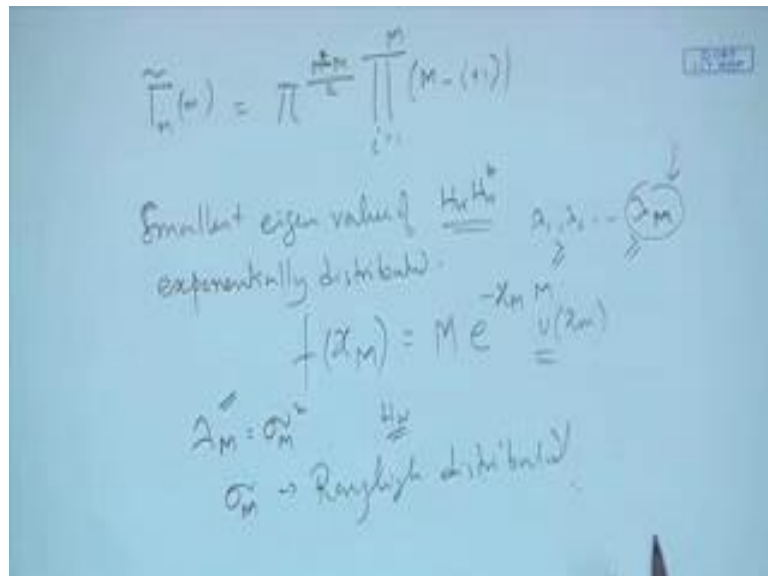 Γ̃_m(m) = π^{} ∏_{i=1}^{M} (M-i+1)!
Smallest eigen value of H_w H_w^* λ_1, λ_2 ... λ_M
exponentially distributed.
f(x_M) = M e^{-x_M M} u(x_M)
λ_M = σ_M^2 H_w
σ_M → Rayleigh distributed